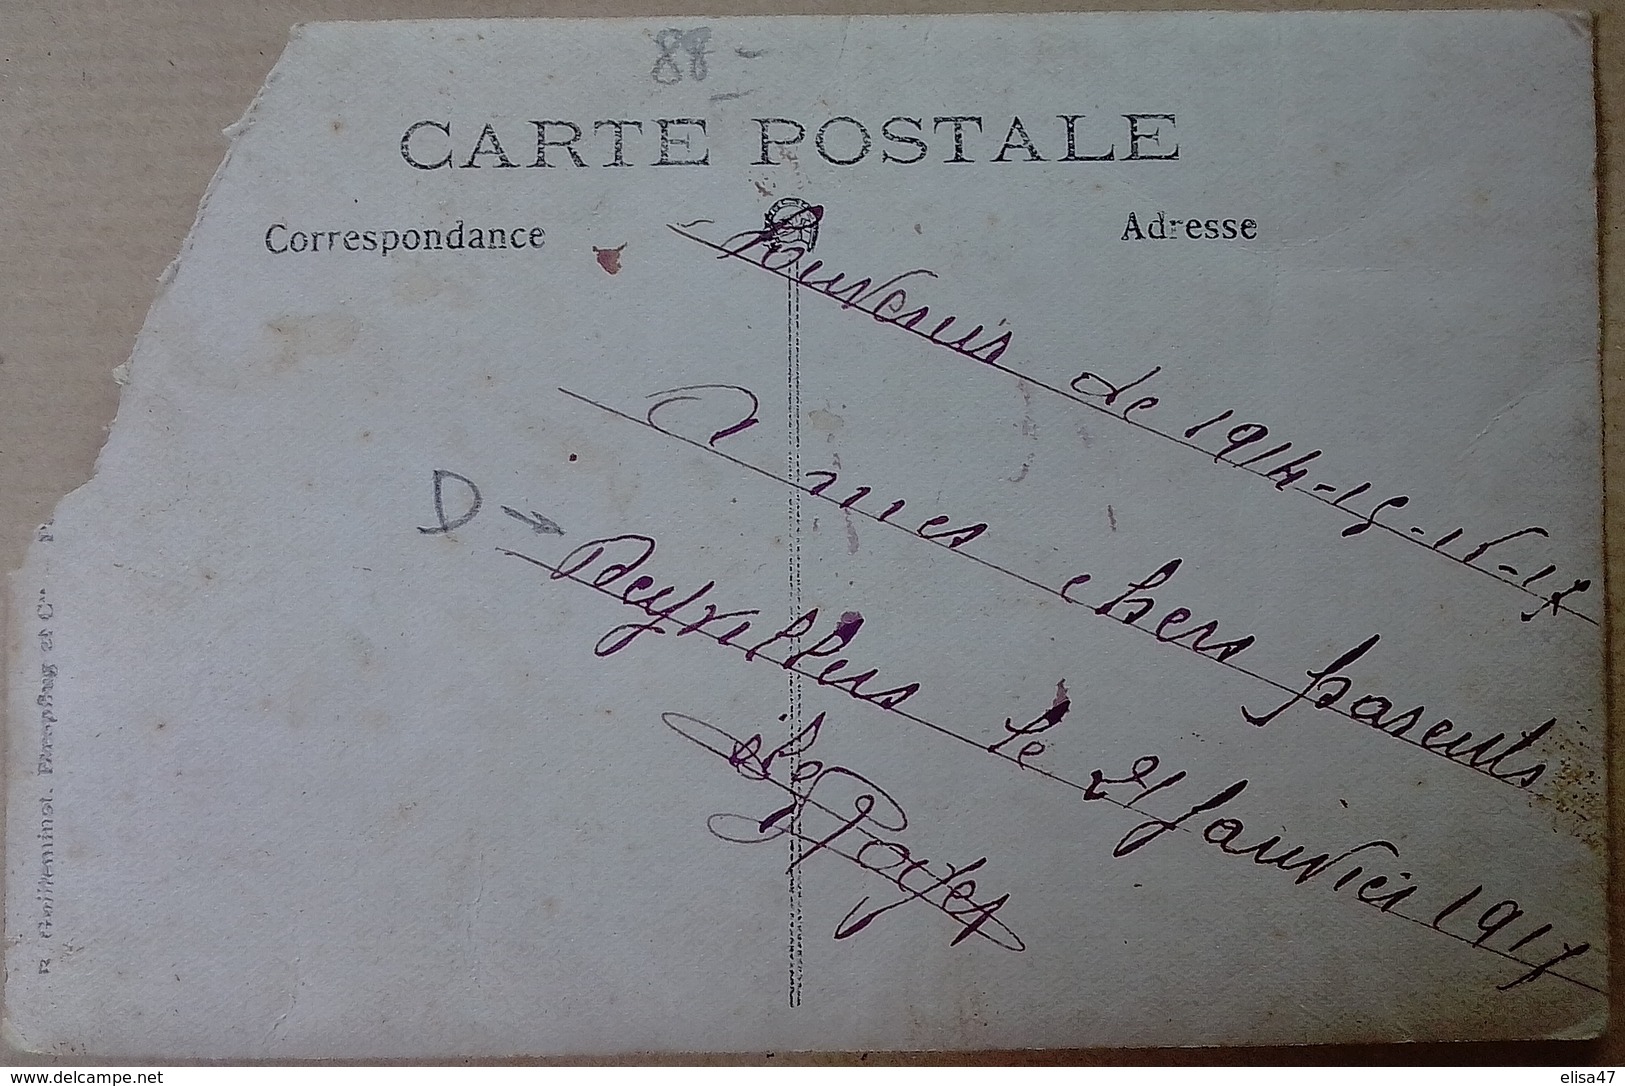 88
CARTE POSTALE
Correspondance
Adresse
Souvenir de 1914-15-16-17
A mes chers parents
D → Deyvillers le 21 Janvier 1917
R. Guilleminot, Bœspflug et Cie
www.delcampe.net
elisa47